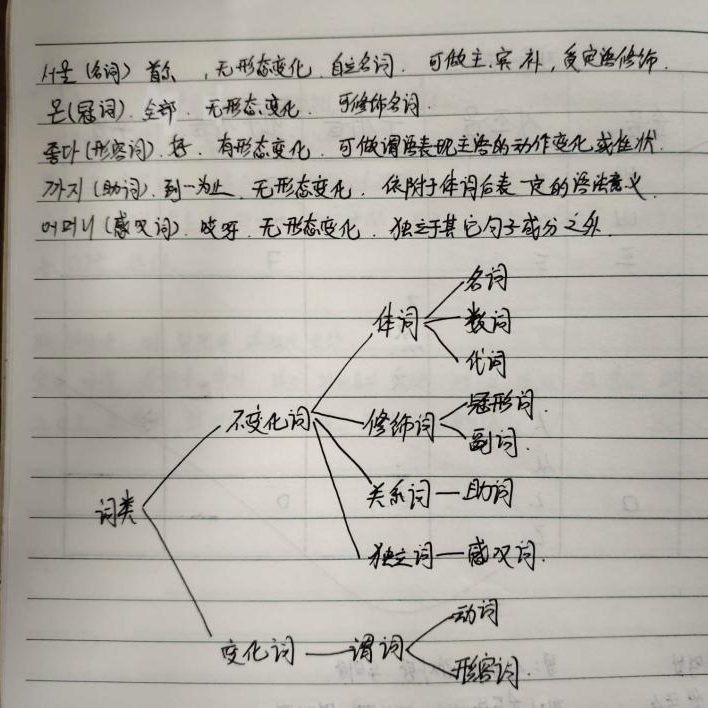 서울 (名词) 首尔 , 无形态变化. 自立名词. 可做主.宾.补, 受定语修饰.
온(冠词). 全部. 无形态变化. 可修饰名词.
좋다 (形容词). 好. 有形态变化. 可做谓语表现主语的动作变化或性状.
까지 (助词). 到一为止. 无形态变化. 依附于体词后表一定的语法意义.
어머니 (感叹词). 哎呀. 无形态变化. 独立于其它句子成分之外.
名词
体词 数词
代词
不变化词 修饰词 冠形词.
副词.
词类 关系词 — 助词
独立词 — 感叹词.
动词
变化词 — 谓词
形容词.